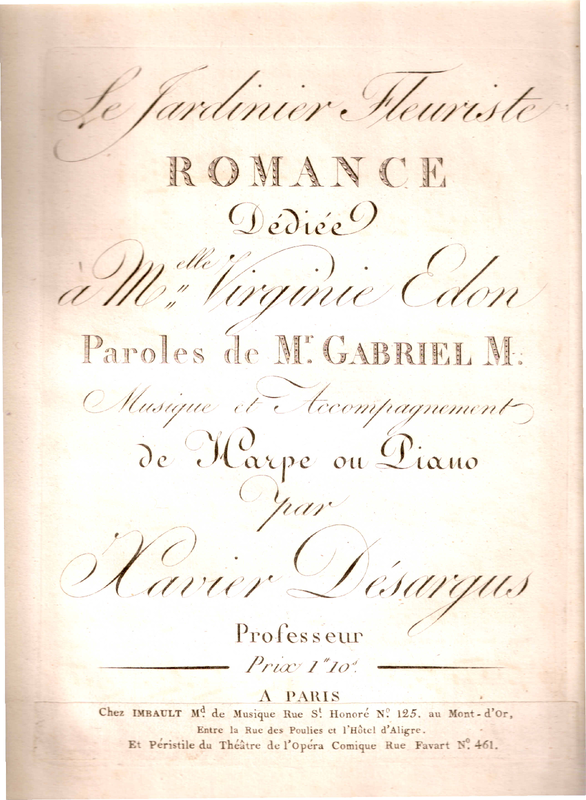 Le Jardinier Fleuriste
ROMANCE
Dédiée
à M.elle Virginie Edon
Paroles de Mr. GABRIEL M.
Musique et Accompagnement
de Harpe ou Piano
par
Xavier Désargus
Professeur
Prix 1.tt 10.s
A PARIS
Chez IMBAULT Md. de Musique Rue St. Honoré No. 125. au Mont-d'Or,
Entre la Rue des Poulies et l'Hôtel d'Aligre.
Et Péristile du Théâtre de l'Opéra Comique Rue Favart No. 461.